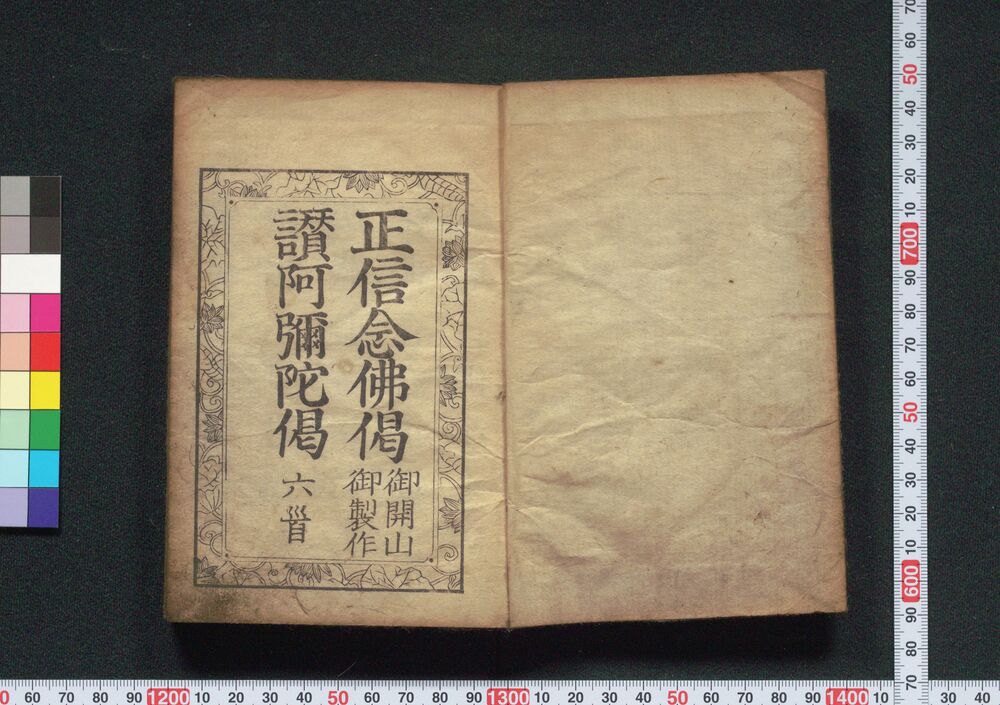 正信念佛偈
御開山
御製作
讃阿彌陀偈
六首
70
60
50
40
30
20
10
700
90
80
70
60
50
40
30
20
10
600
90
80
70
0 60 70 80 90 1200 10 20 30 40 50 60 70 80 90 1300 10 20 30 40 50 60 70 80 90 1400 10 30 40